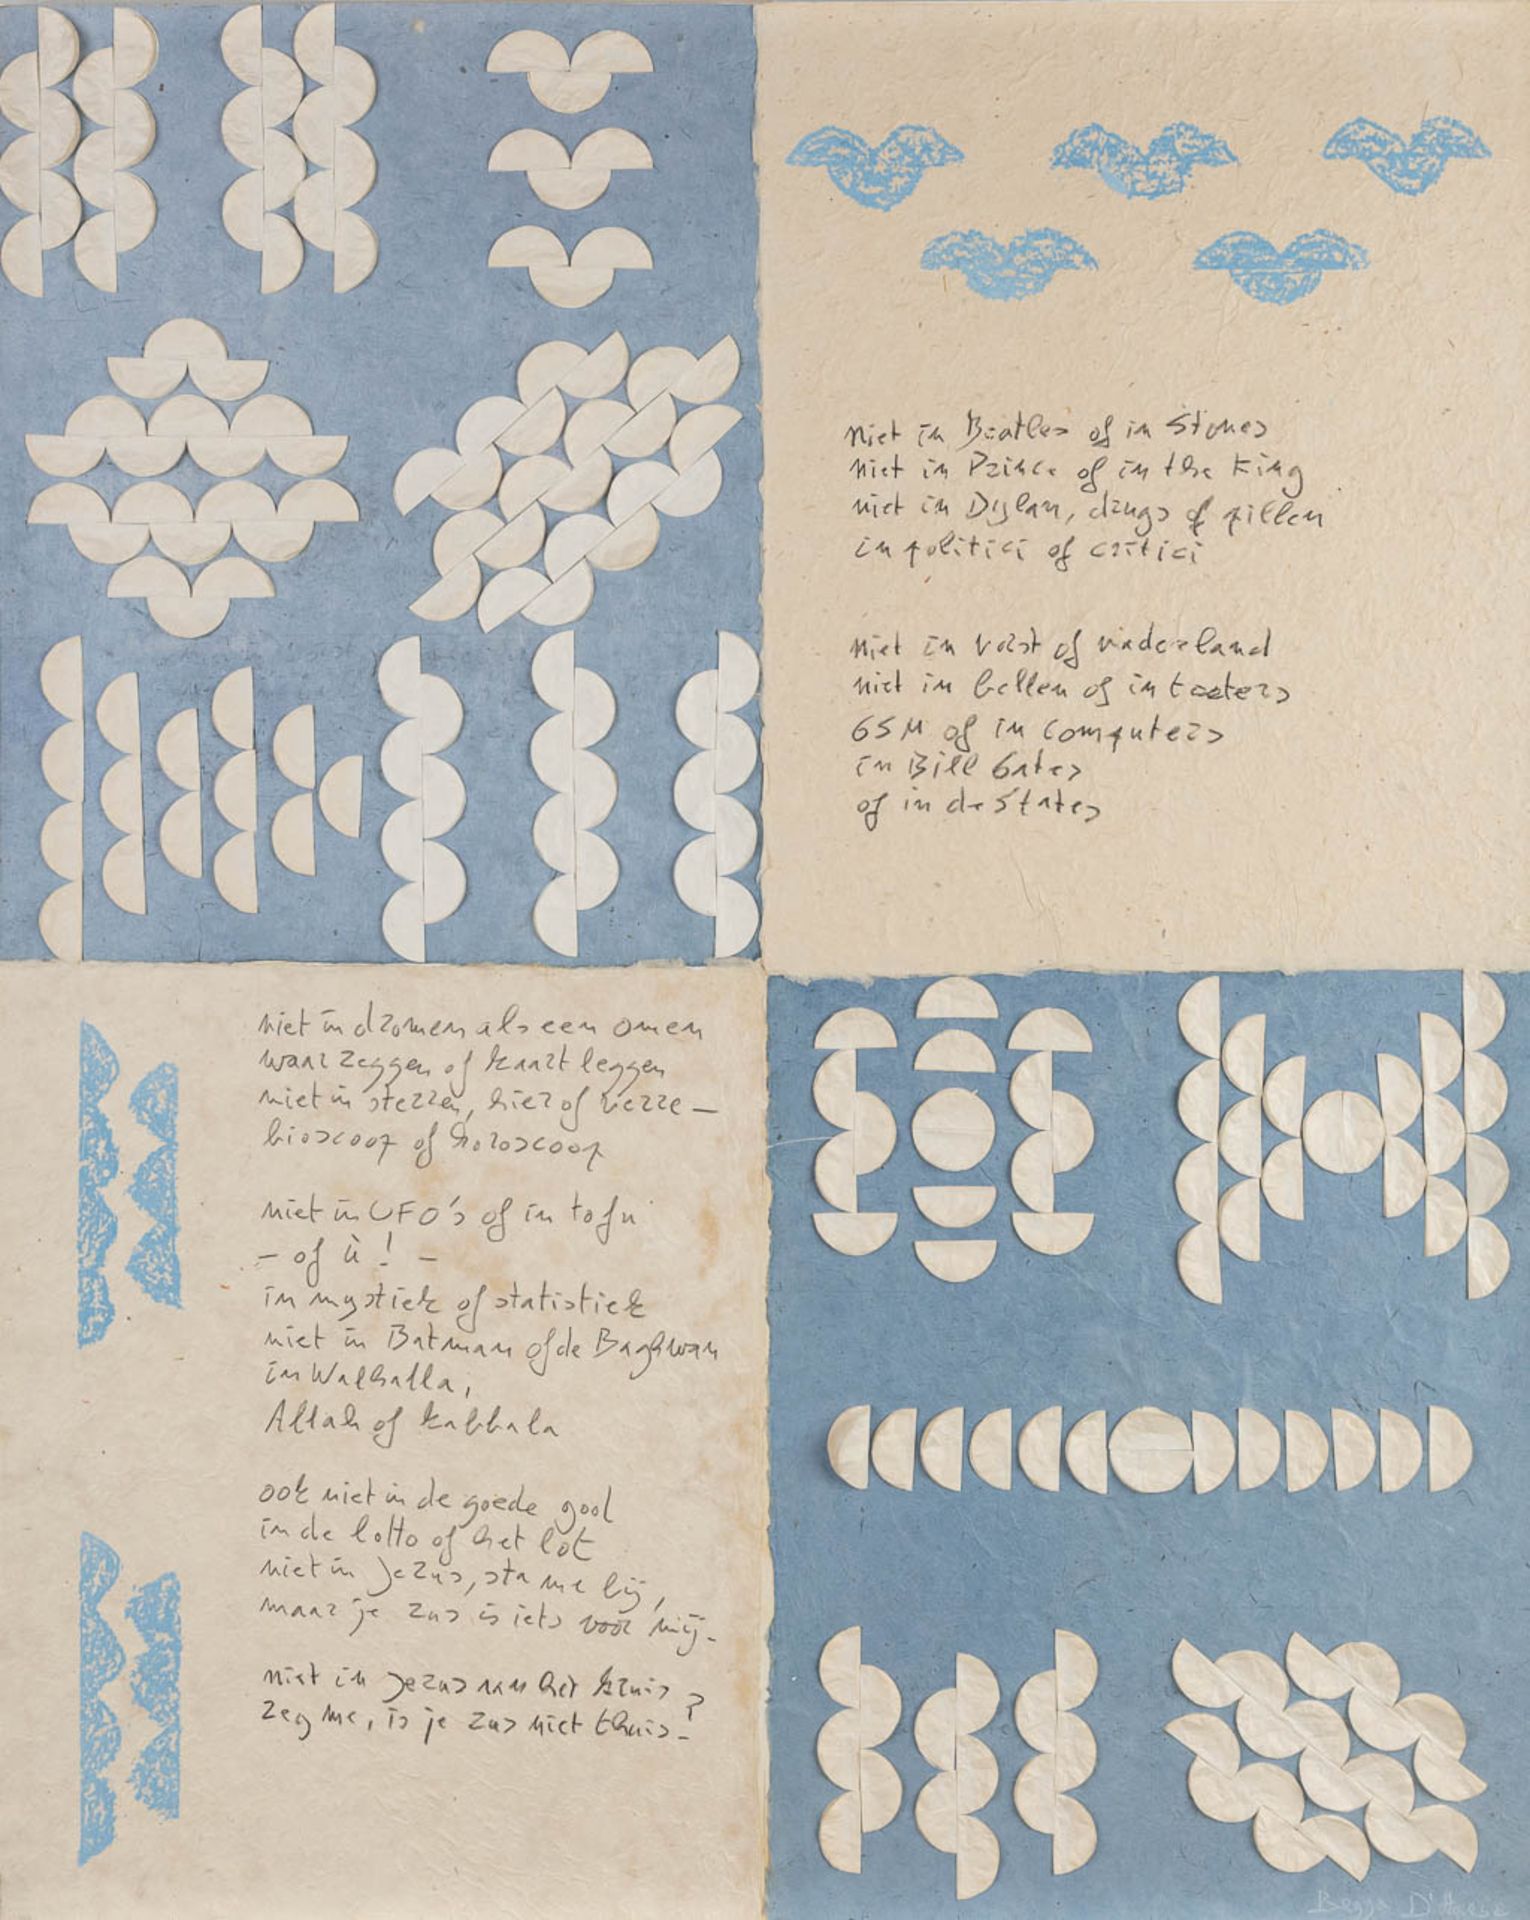 niet in Beatles of in Stones
niet in Prince of in the King
niet in Dylan, drugs of pillen
in politici of critici
niet in vorst of vaderland
niet in bellen of in toeters
GSM of in computers
in Bill Gates
of in de States
niet in dromen als een omen
waarzeggen of kaartleggen
niet in sterren, hier of verre –
bioscoop of horoscoop
niet in UFO's of in tofu
– of ù ! –
in mystiek of statistiek
niet in Batman of de Baghwan
in Walhalla,
Allah of kabbala
ook niet in de goede god
in de lotto of het lot
niet in Jezus, sta me bij,
maar je zus is iets voor mij.
niet in Jezus aan het kruis
zeg me, is je zus niet thuis?
Begga D'Haese